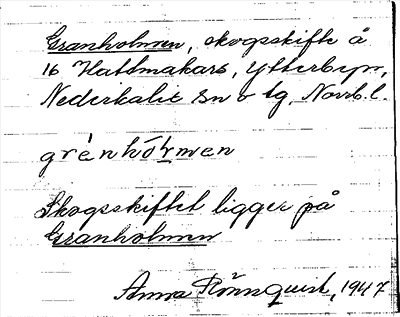 Granholmen, skogsskifte å
16 Hattmakars, Ytterbyn,
Nederkalix sn o tg, Norrb. l.
grènhó̄ɫmen
Skogsskiftet ligger på
Granholmen
Anna Rönnquist, 1947